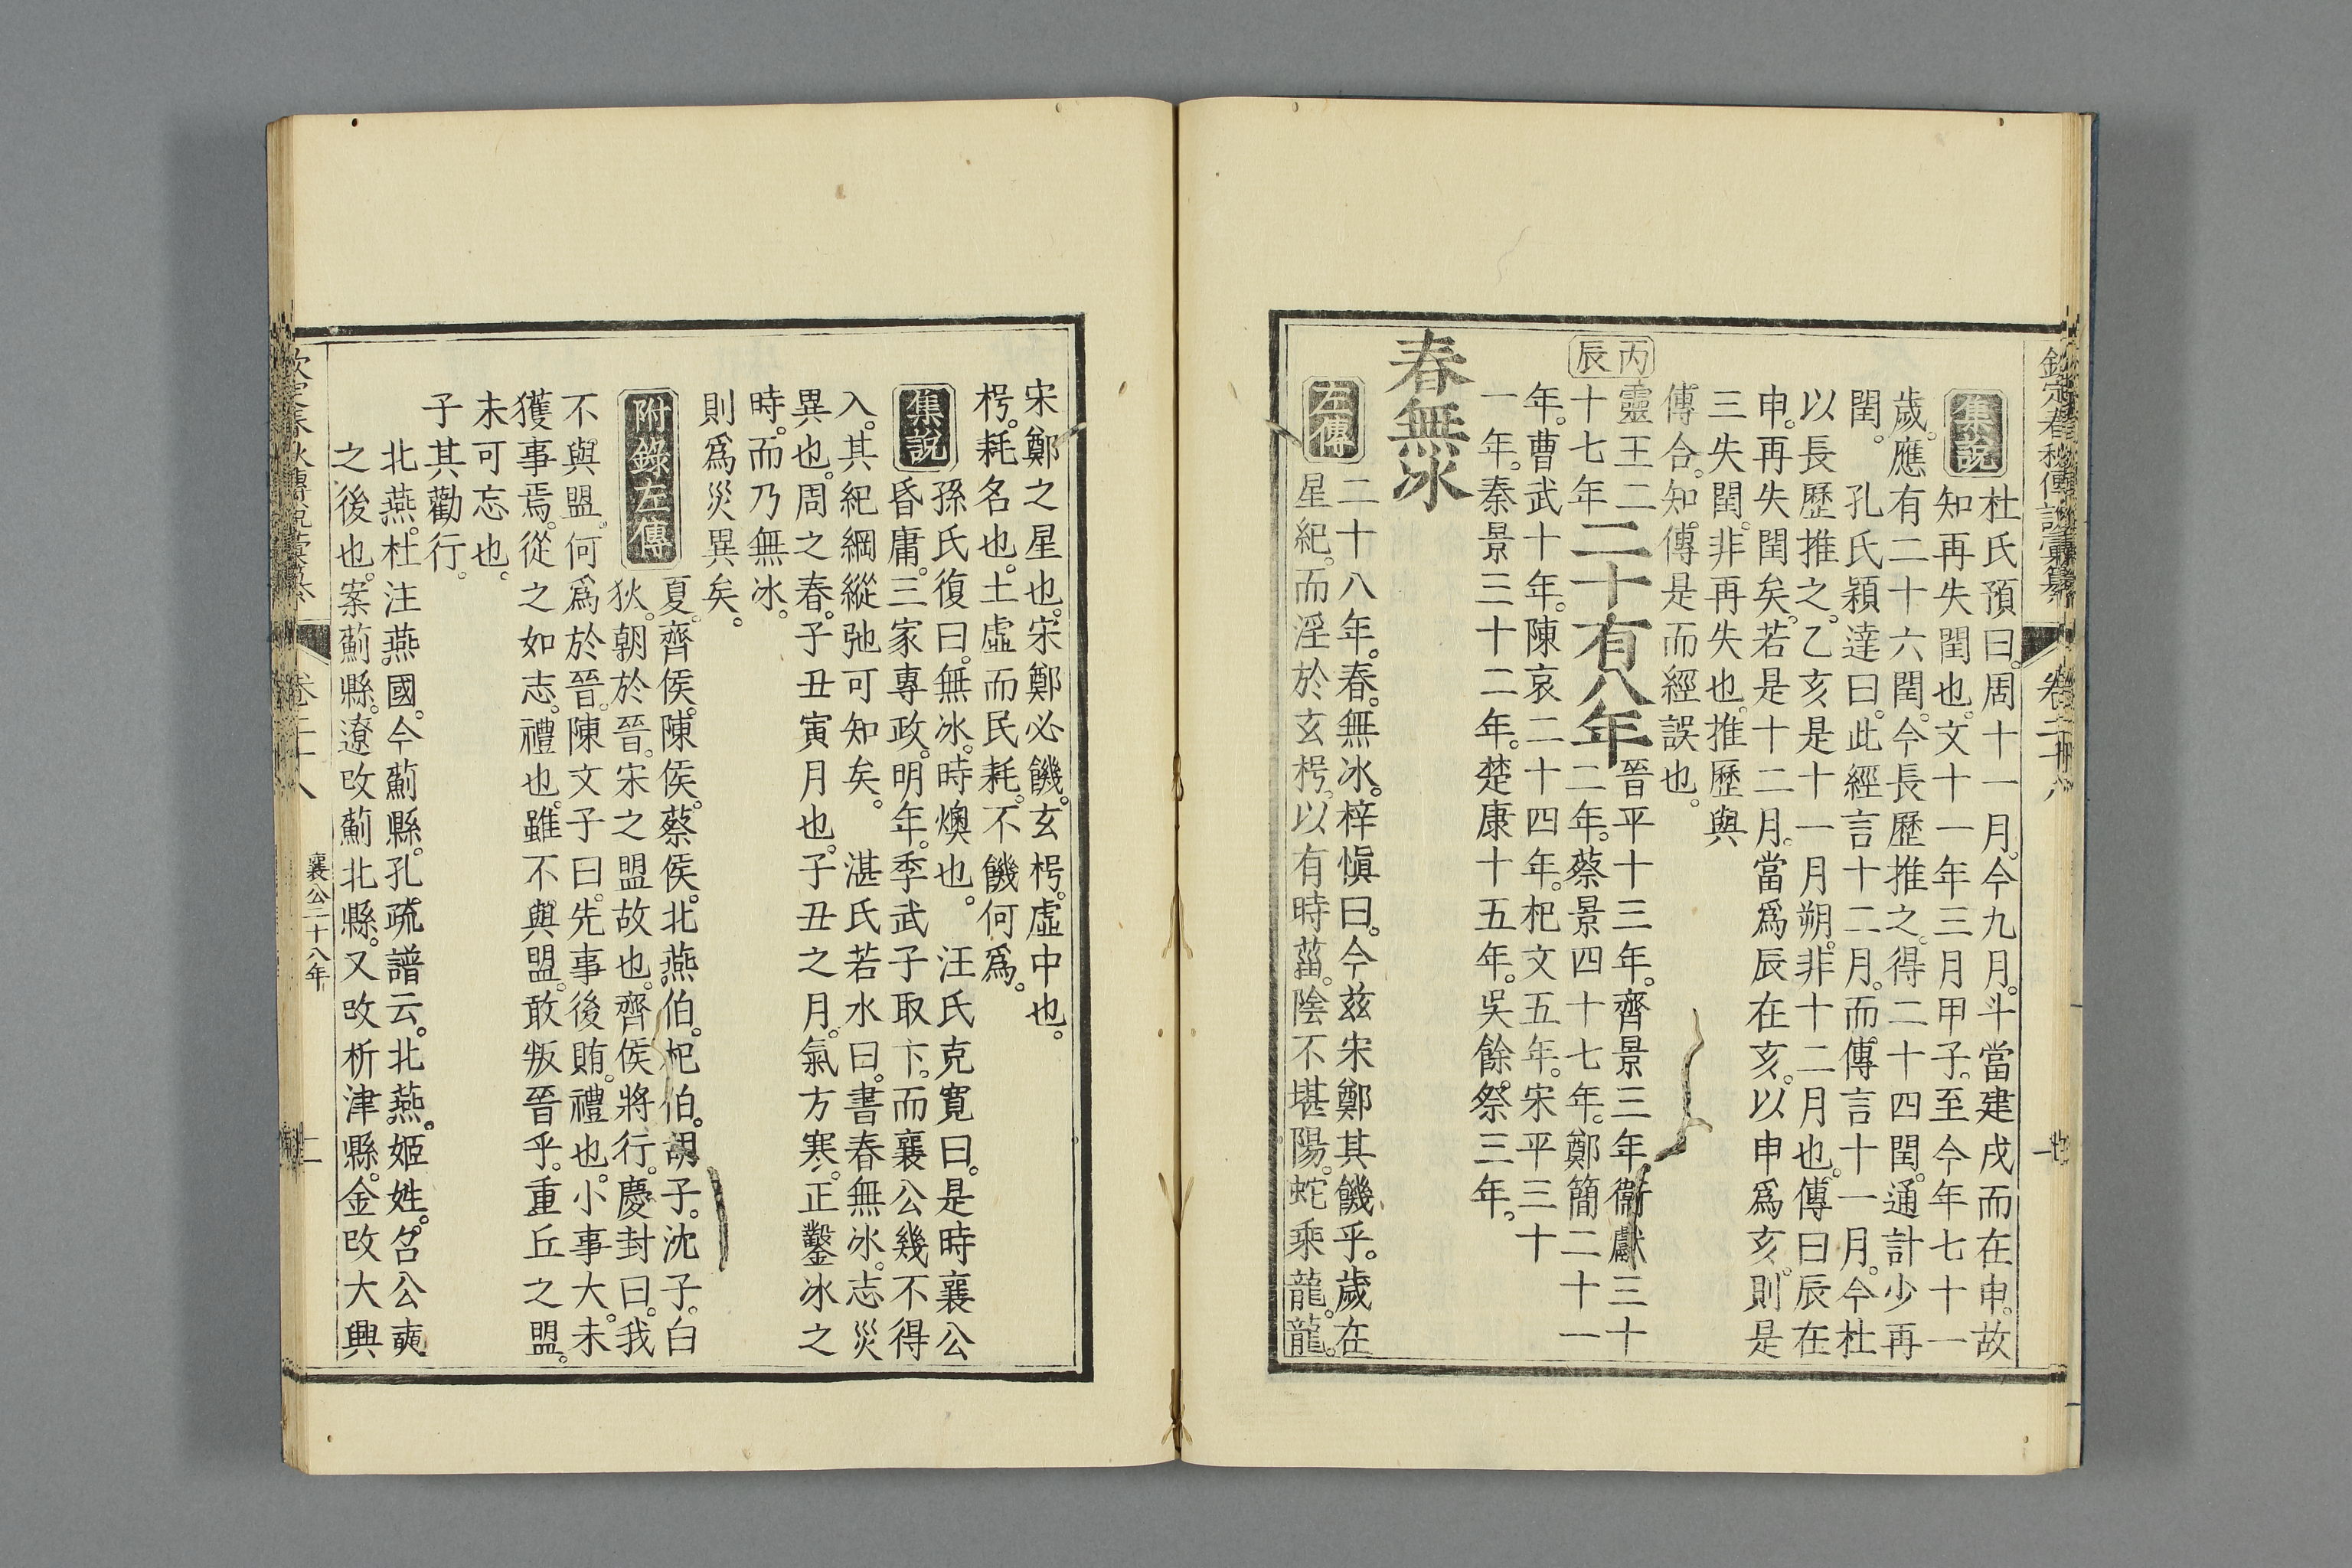 欽定春秋傳說彙纂 卷二十八
集說 杜氏預曰。周十一月。今九月。斗當建戌而在申。故
知再失閏也。文十一年三月甲子。至今年七十一
歲。應有二十六閏。今長歷推之。得二十四閏。通計少再
閏。 孔氏穎達曰。此經言十二月。而傳言十一月。今杜
以長歷推之。乙亥是十一月朔。非十二月也。傳曰辰在
申。再失閏矣。若是十二月。當爲辰在亥。以申爲亥。則是
三失閏。非再失也。推歷與
傳合。知傳是而經誤也。
丙辰
靈王二十七年
二十有八年
晉平十三年。齊景三年。衞獻三十
二年。蔡景四十七年。鄭簡二十一
年。曹武十年。陳哀二十四年。杞文五年。宋平三十
一年。秦景三十二年。楚康十五年。吳餘祭三年。
春無冰
左傳 二十八年。春。無冰。梓愼曰。今茲宋鄭其饑乎。歲在
星紀。而淫於玄枵。以有時菑。陰不堪陽。蛇乘龍。龍。
宋鄭之星也。宋鄭必饑。玄枵。虛中也。
枵。耗名也。土虛而民耗。不饑何爲。
集說 孫氏復曰。無冰。時燠也。 汪氏克寬曰。是時襄公
昏庸。三家專政。明年。季武子取卞。而襄公幾不得
入。其紀綱縱弛可知矣。 湛氏若水曰。書春無冰。志災
異也。周之春。子丑寅月也。子丑之月。氣方寒。正鑿冰之
時。而乃無冰。
則爲災異矣。
附錄左傳 夏。齊侯。陳侯。蔡侯。北燕伯。杞伯。胡子。沈子。白
狄。朝於晉。宋之盟故也。齊侯將行。慶封曰。我
不與盟。何爲於晉。陳文子曰。先事後賄。禮也。小事大。未
獲事焉。從之如志。禮也。雖不與盟。敢叛晉乎。重丘之盟。
未可忘也。
子其勸行。
北燕。杜注燕。國。今薊縣。孔疏譜云。北燕。姬姓。召公奭
之後也。案薊縣。遼改薊北縣。又改析津縣。金改大興
卷二十八 襄公二十八年